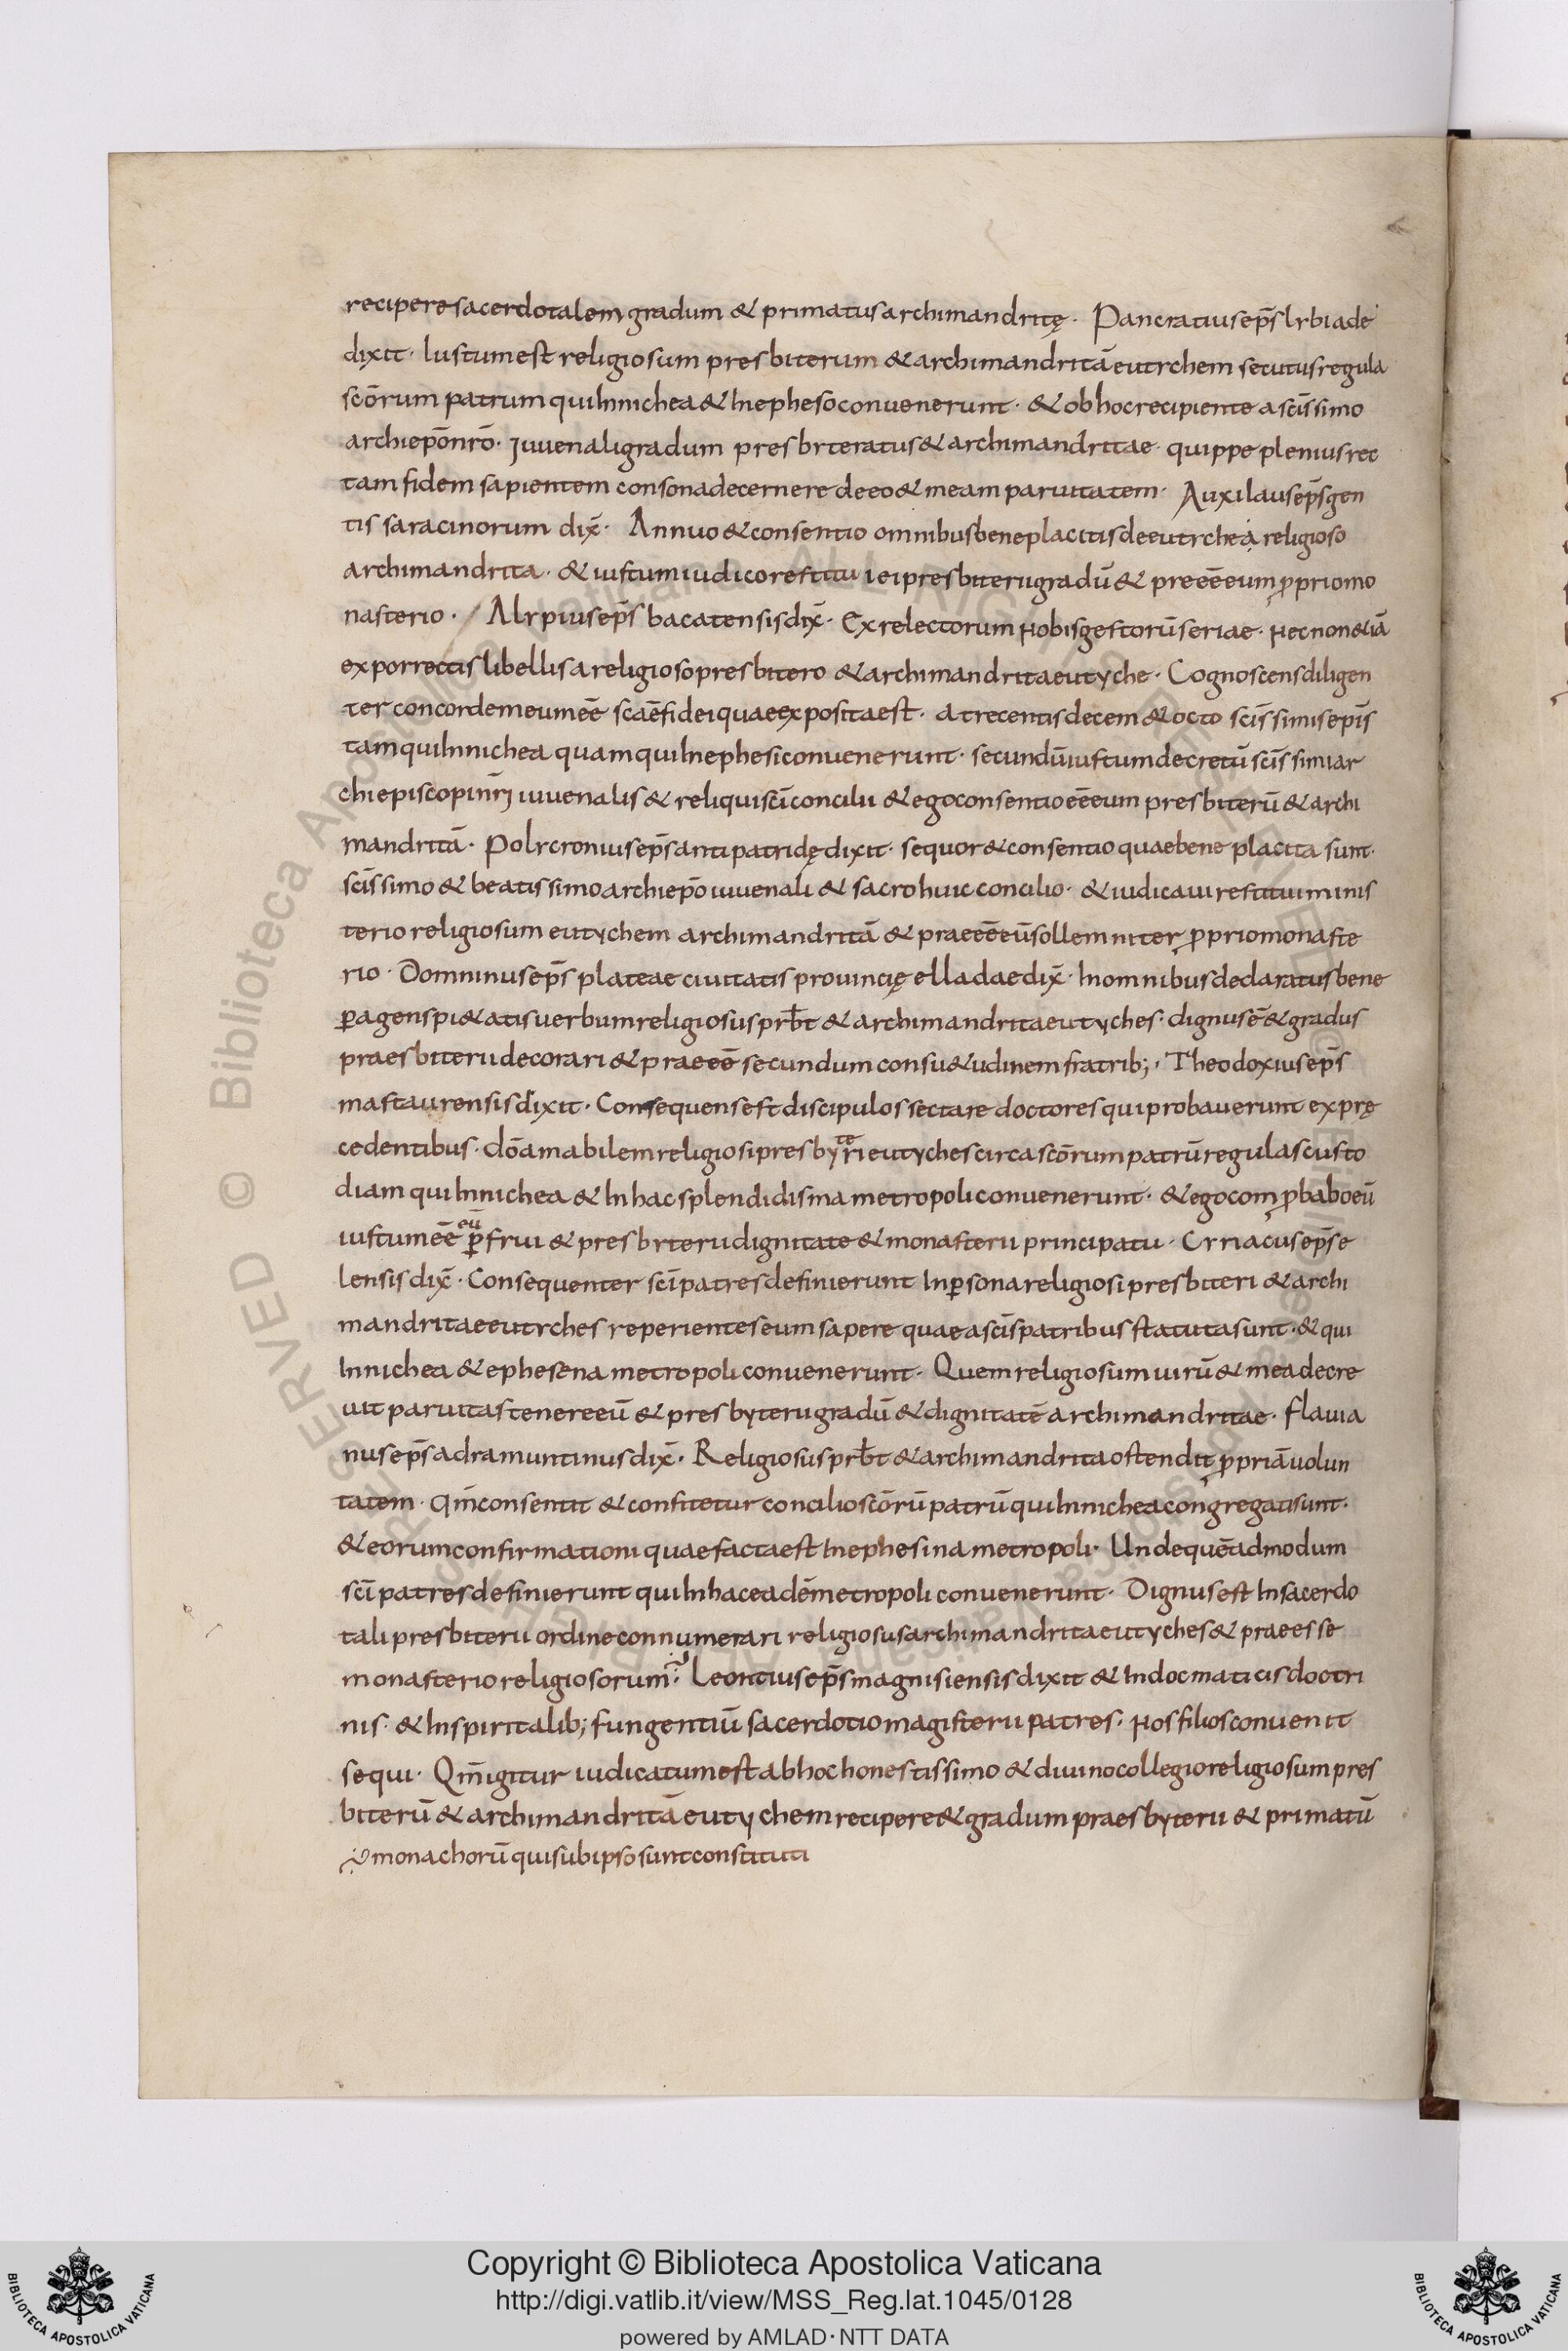 reciperesacerdotalem gradum & primatus archimandritę · Pancratius ep̄s lybiade
dixit · Iustum est religiosum presbiterum & archimandritā eutychem secutus regula
scōrum patrum qui In nichea & In epheso convenerunt · & ob hoc recipiente a scīssimo
archiep̄o nrō · Iuvenali gradum presbyteratus & archimandritae · quippe plenius rec
tam fidem sapientem consona decernere de eo & meam parvitatem · Auxilaus ep̄s gen
tis saracinorum dix̄ · Annuo & consentio omnibus bene placitis de eutychea religioso
archimandrita · & iustum iudico restitui ei presbiterii gradū & preeēe eum p̱prio mo
nasterio · Alypius ep̄s bacatensis dix̄ · Ex relectorum Nobis gestorū seriae · Nec non &iā
ex porrectis libellis a religioso presbitero & archimandrita eutyche · Cognoscens diligen
ter concordem eum eē scāe fidei quae exposita est · a trecentis decem & octo scīssimis ep̄is
tam qui In nichea quam qui In ephesi convenerunt · secundū iustum decretū scīssimi ar
chiepiscopi nr̄i iuvenalis & reliqui scī concilii & ego consentio eēe eum presbiterū & archi
mandritā · Polycronius ep̄s antipatridę dixit · sequor & consentio quae bene placita sunt ·
scīssimo & beatissimo archiep̄o iuvenali & sacro huic concilio · & iudicavi restitui minis
terio religiosum eutychem archimandritā & praeeēe eū sollemniter p̱prio monaste
rio · Domninus ep̄s plateae civitatis provincię elladae dix̄ · In omnibus declaratus bene
p̱agens pi&atis verbum religiosus prb̄t & archimandrita eutyches · dignus ē & gradus
praesbiterii decorari & praeeēe secundum consu&udinem fratrib; · Theodoxius ep̄s
mastaurensis dixit · Consequens est discipulos sectare doctores qui probaverunt ex prę
cedentibus · dō amabilem religiosi presbyteri eutyches circa scōrum patrū regulas custo
diam qui In nichea & In hac splendidisma metropoli convenerunt · & ego comp̱babo eū
iustum eē eū p̱frui & presbyterii dignitate & monasterii principatu · Cyriacus ep̄s e
lensis dix̄ · Consequenter scī patres definierunt In p̱sona religiosi presbiteri & archi
mandritae eutyches reperientes eum sapere quae a scīs patribus statuta sunt · & qui
In nichea & ephesena metropoli convenerunt · Quem religiosum virū & mea decre
vit parvitas tenere eū & presbyterii gradū & dignitatē archimandritae · flavia
nus ep̄s adramuntinus dix̄ · Religiosus prb̄t & archimandrita ostendit p̱priā volun
tatem · qm̄ consentit & confitetur concilio scōrū patrū qui In nichea congregati sunt ·
& eorum confirmationi quae facta est In ephesina metropoli · Unde quēadmodum
scī patres definierunt qui In hac eadē metropoli convenerunt · Dignus est In sacerdo
tali presbiterii ordine connumerari religiosus archimandrita eutyches & praeesse
monasterio religiosorum · Leontius ep̄s magnisiensis dixit & In docmaticis doctri
nis · & In spiritalib; fungentiū sacerdotio magisterii patres · Nos filios convenit
sequi · Qm̄ igitur iudicatum est ab hoc honestissimo & divino collegio religiosum pres
biterū & archimandritā eutychem recipere & gradum praesbyterii & primatū
monachorū qui sub ipso sunt constituti
Copyright © Biblioteca Apostolica Vaticana
http://digi.vatlib.it/view/MSS_Reg.lat.1045/0128
powered by AMLAD · NTT DATA